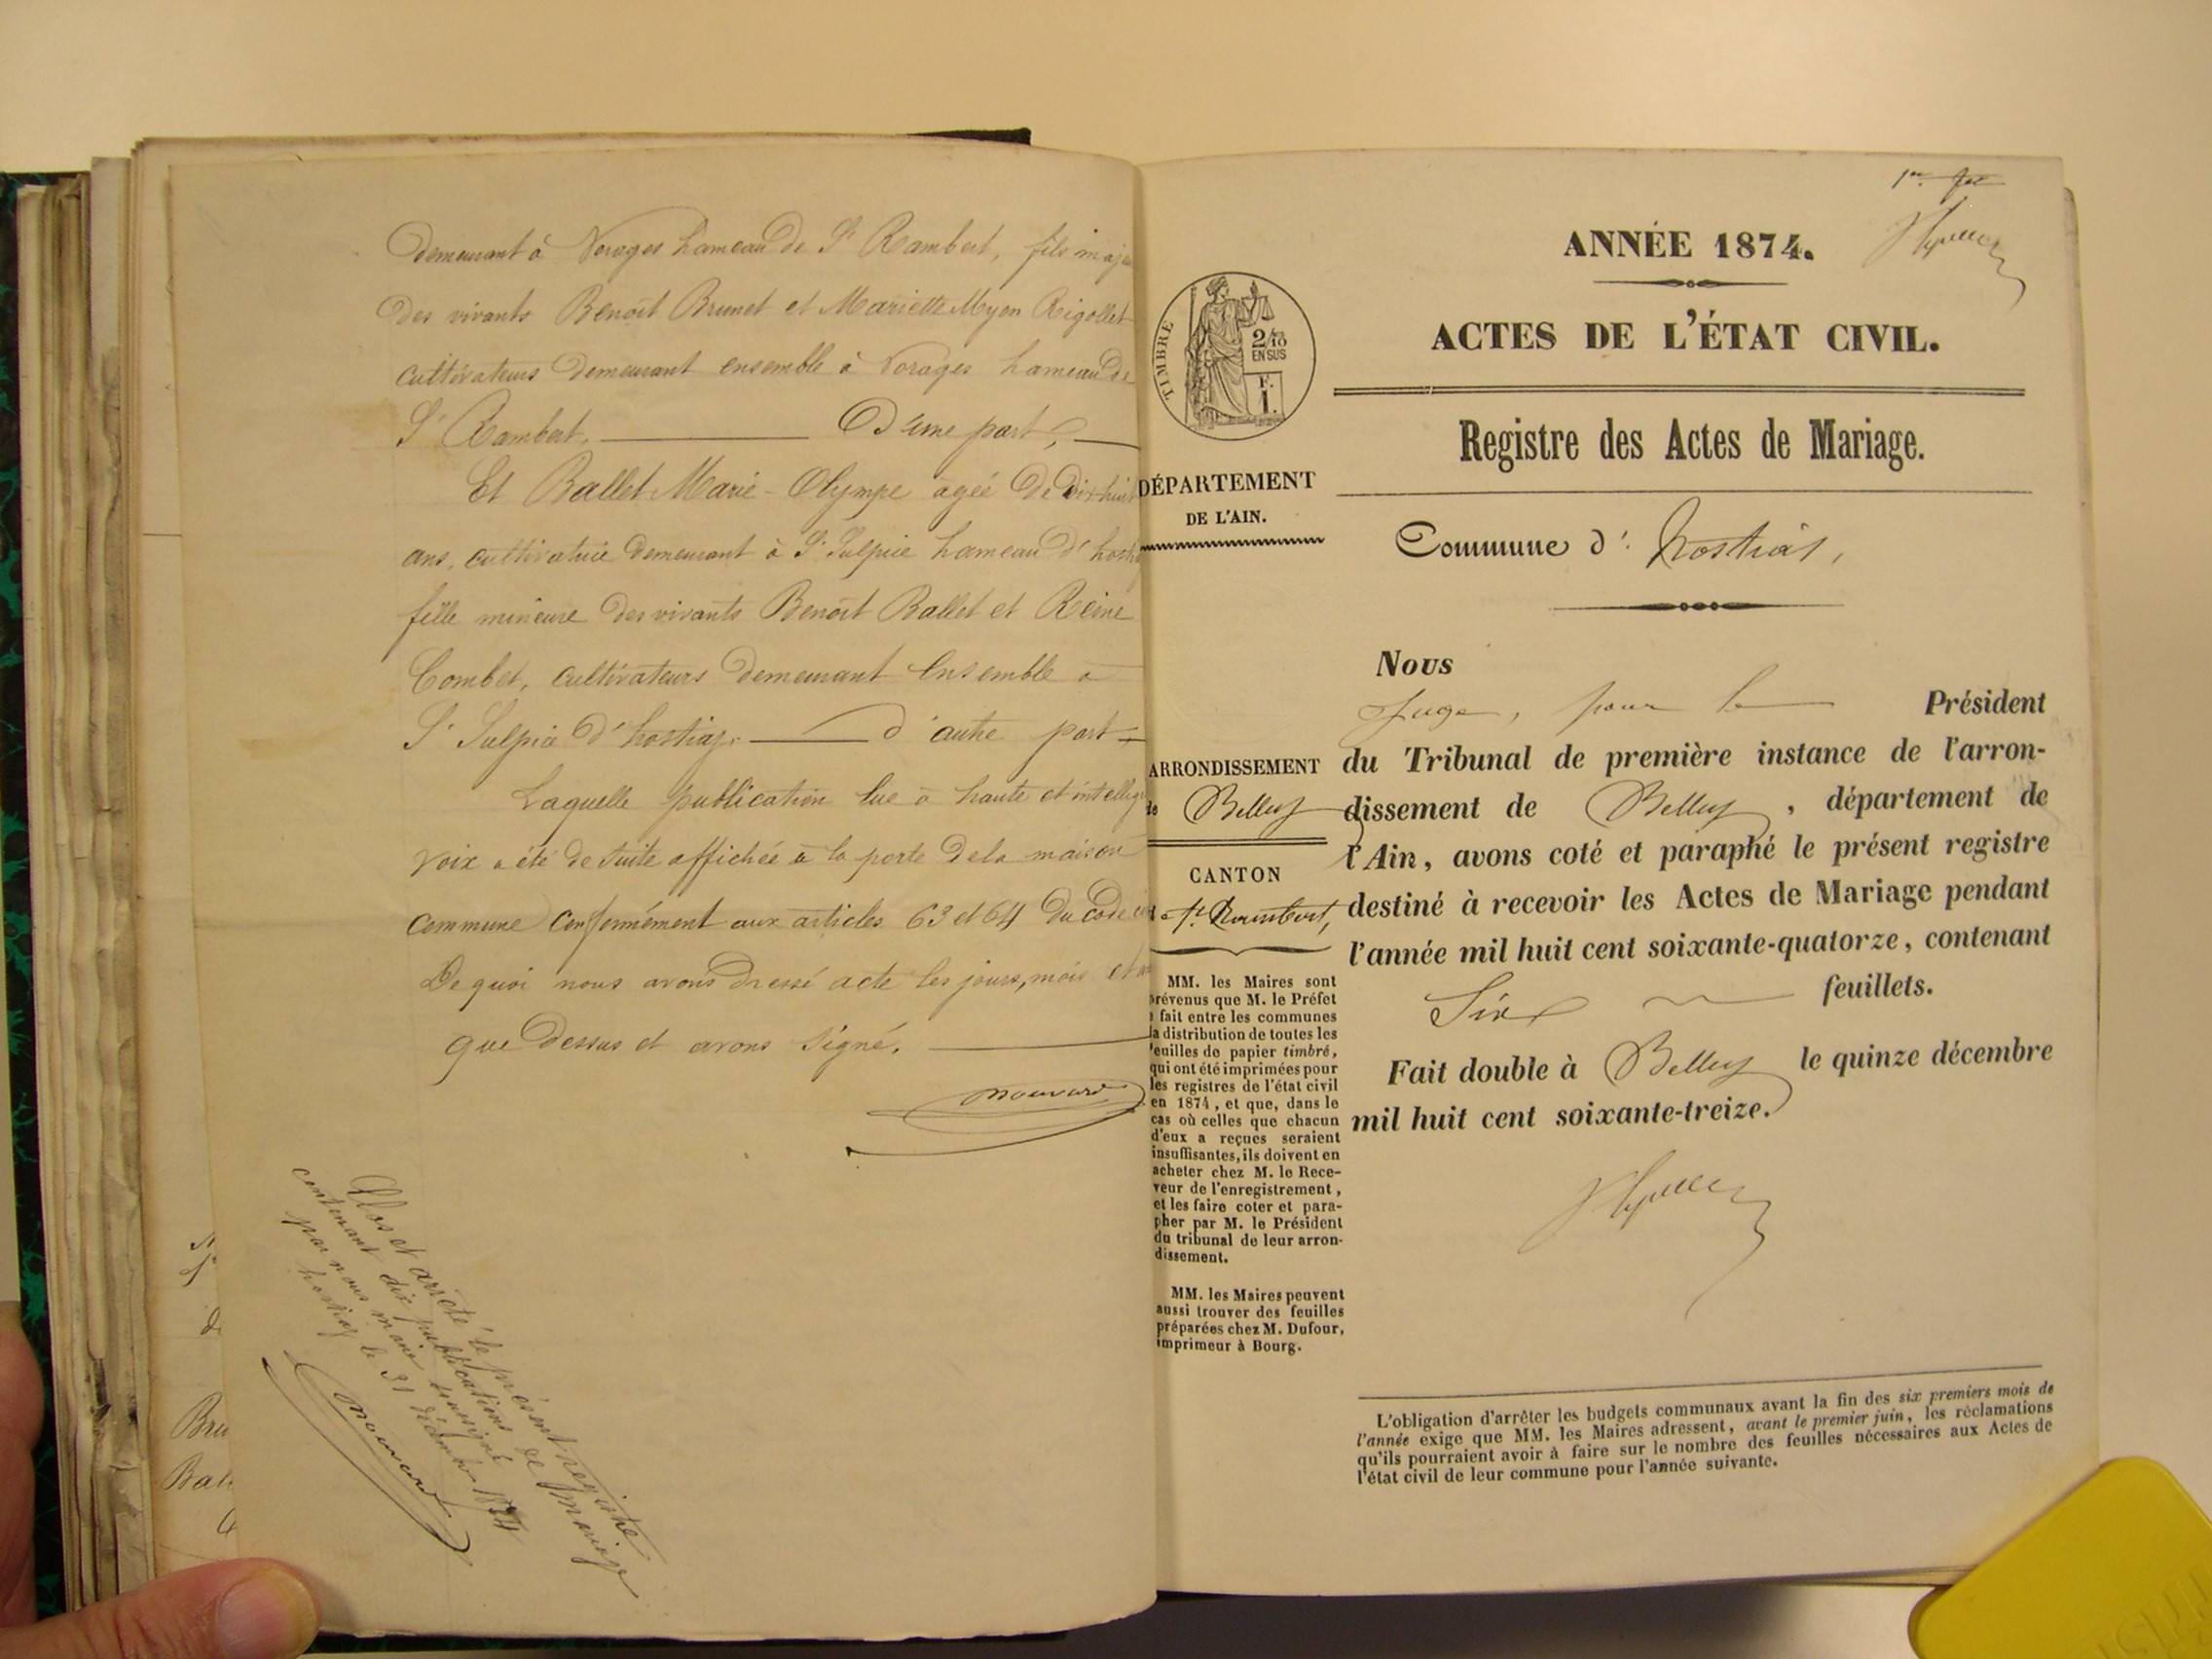 demeurant à Vorages hameau de St Rambert, fils maje
des vivants Benoit Brunet et Mariette Myon Rigollet
cultivateurs demeurant ensemble à Vorages hameau de
St Rambert. D'une part,
Et Ballet Marie-Olympe agée de dix huit
ans, cultivatrice demeurant à St Sulpice hameau d'hosti
fille mineure des vivants Benoit Ballet et Reine
Combet, cultivateurs demeurant ensemble à
St Sulpice d'hostiaz. d'autre part
Laquelle publication lue à haute et intellig
voix a été de suite affichée à la porte de la maison
commune conformément aux articles 63 et 64 du code
De quoi nous avons dressé acte les jours, mois et
que dessus et avons signé.
Clos et arrêté le présent registre
contenant dix publications de mariage
par nous maire soussigné
hostiaz le 31 décembre 1874
TIMBRE
2/10
EN SUS
F.
1.
DÉPARTEMENT
DE L'AIN.
ARRONDISSEMENT
de Belley
CANTON
de St Rambert,
MM. les Maires sont
prévenus que M. le Préfet
a fait entre les communes
la distribution de toutes les
feuilles de papier timbré,
qui ont été imprimées pour
les registres de l'état civil
en 1874, et que, dans le
cas où celles que chacun
d'eux a reçues seraient
insuffisantes, ils doivent en
acheter chez M. le Rece-
veur de l'enregistrement,
et les faire coter et para-
pher par M. le Président
du tribunal de leur arron-
dissement.
MM. les Maires peuvent
aussi trouver des feuilles
préparées chez M. Dufour,
imprimeur à Bourg.
ANNÉE 1874.
ACTES DE L'ÉTAT CIVIL.
Registre des Actes de Mariage.
Commune d' hostiaz,
Nous
Juge, pour le Président
du Tribunal de première instance de l'arron-
dissement de Belley, département de
l'Ain, avons coté et paraphé le présent registre
destiné à recevoir les Actes de Mariage pendant
l'année mil huit cent soixante-quatorze, contenant
Six feuillets.
Fait double à Belley le quinze décembre
mil huit cent soixante-treize.
L'obligation d'arrêter les budgets communaux avant la fin des six premiers mois de
l'année exige que MM. les Maires adressent, avant le premier juin, les réclamations
qu'ils pourraient avoir à faire sur le nombre des feuilles nécessaires aux Actes de
l'état civil de leur commune pour l'année suivante.